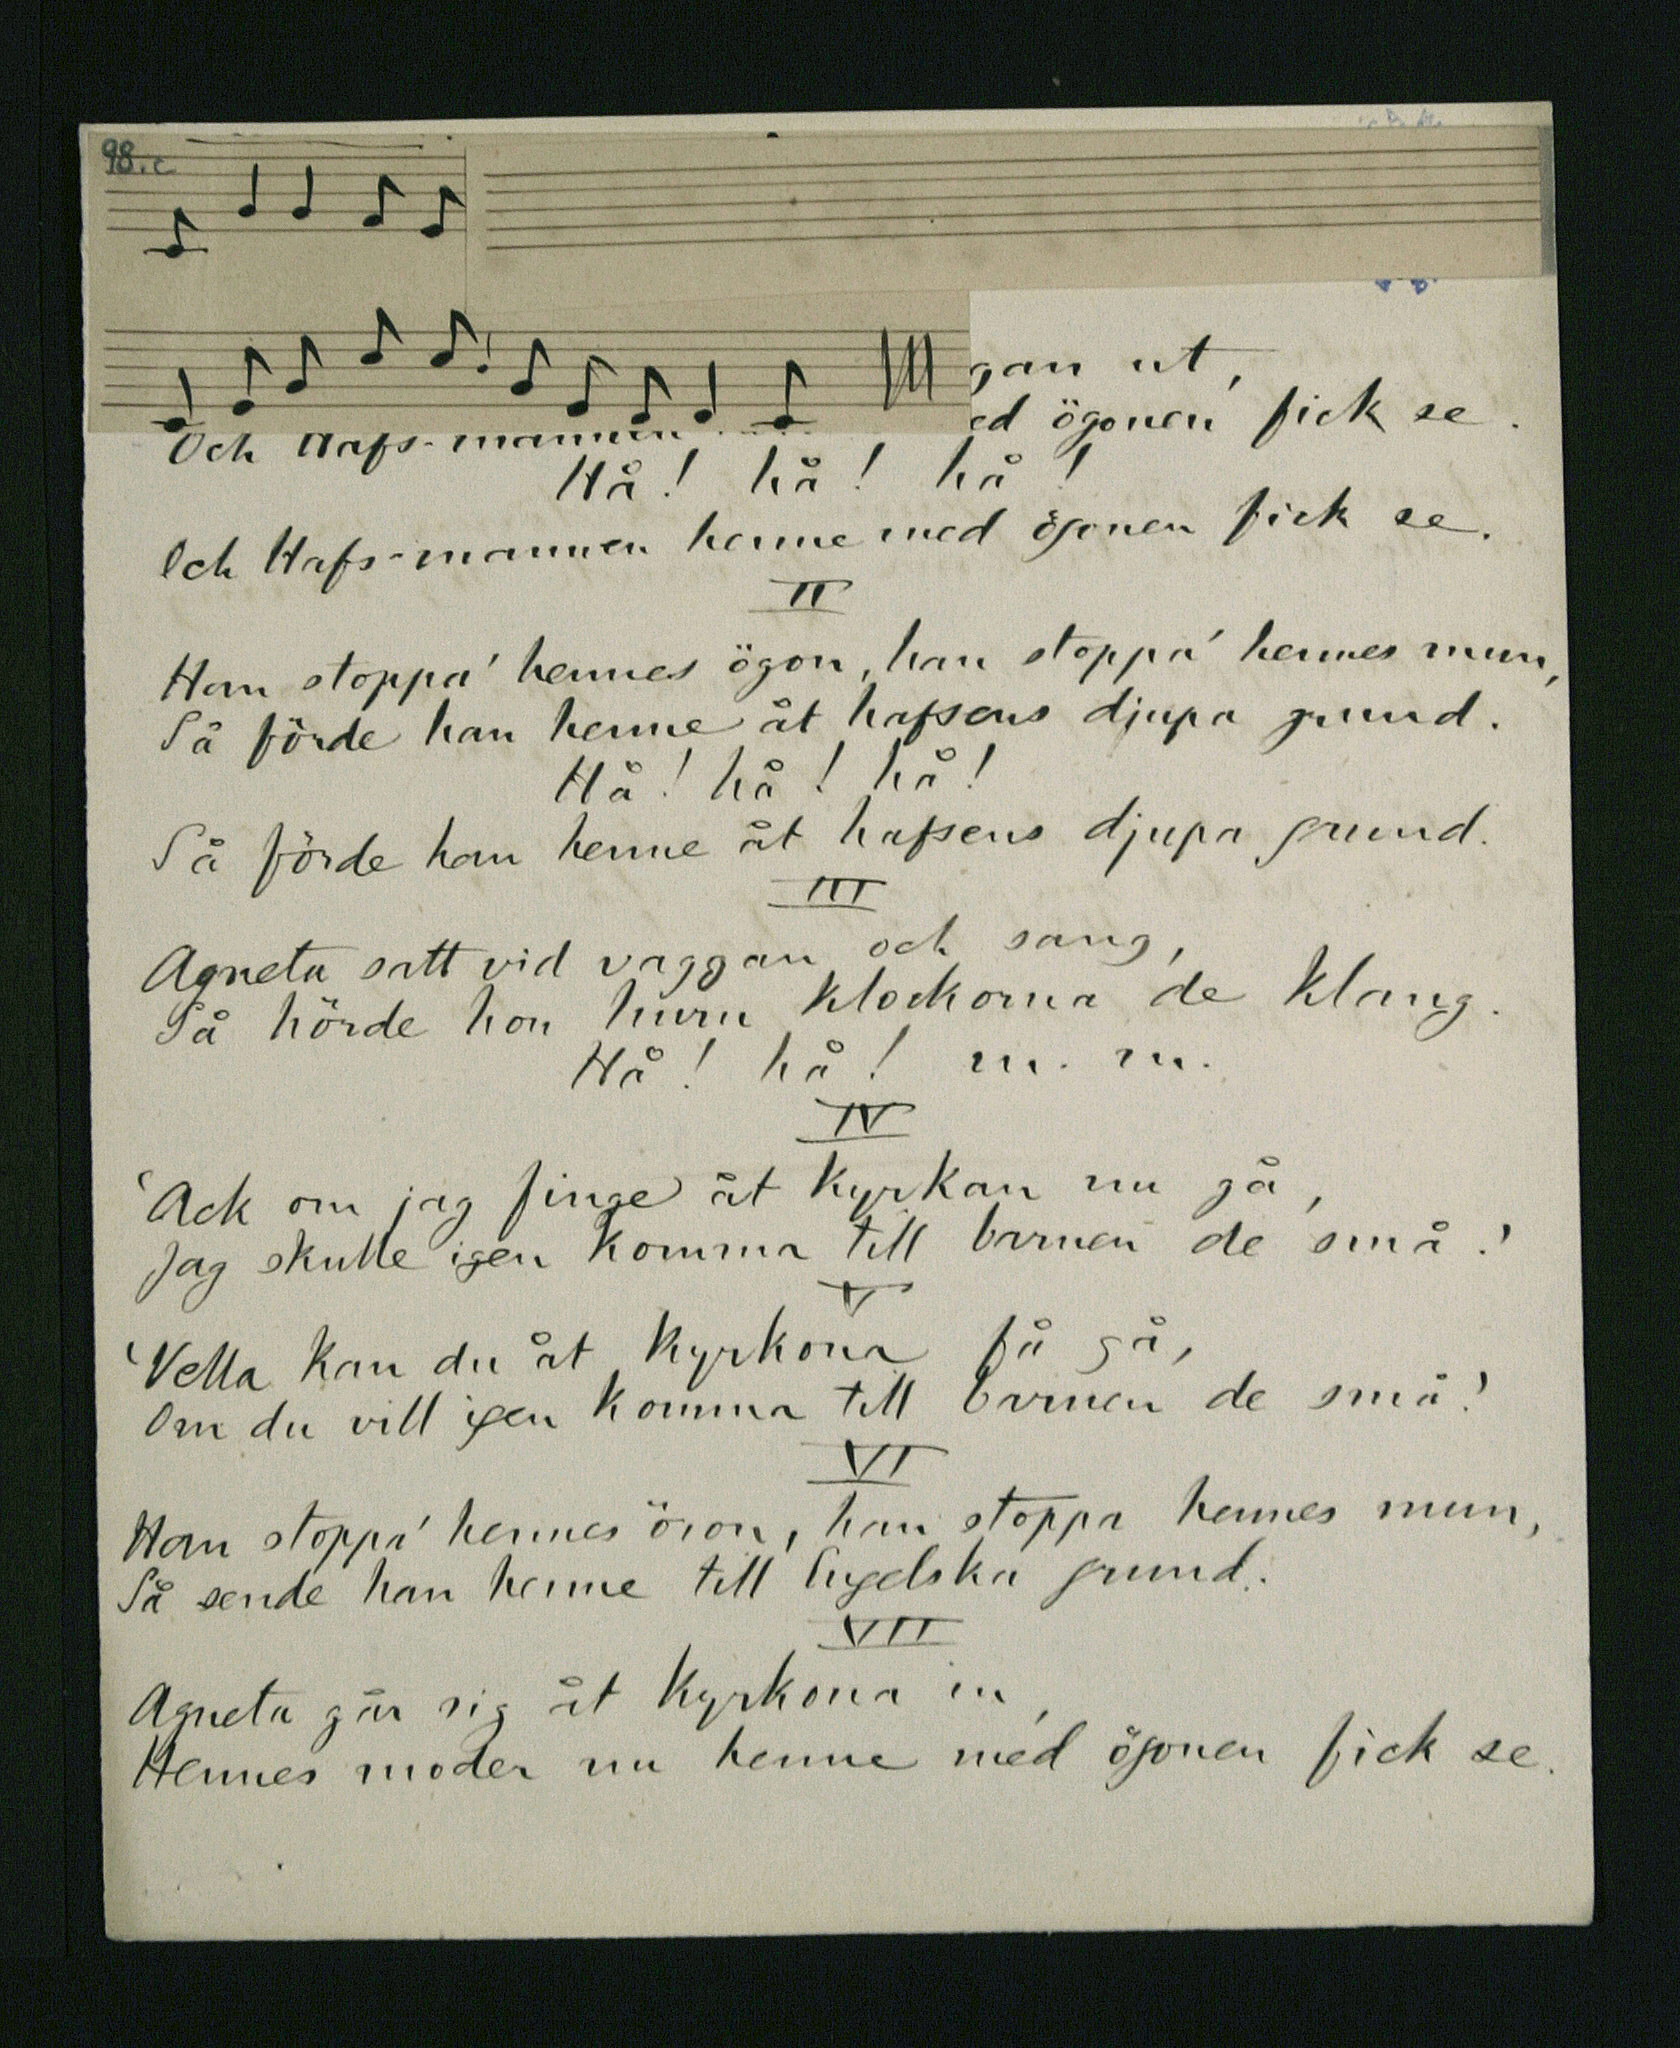 98.c
gan ut,
Och Hafs-mannen ed ögonen fick se.
Hå! hå! hå!
Och Hafs-mannen henne med ögonen fick se.
II
Han stoppa' hennes ögon, han stoppa' hennes mun,
Så förde han henne åt hafsens djupa grund.
Hå! hå! hå!
Så förde han henne åt hafsens djupa grund.
III
Agneta satt vid vaggan och sang,
Så hörde hon huru klockorna de klang.
Hå! hå! m. m.
IV
'Ack om jag finge åt kyrkan nu gå,
Jag skulle igen komma till barnen de små!'
V
'Vella kan du åt kyrkona få gå,
Om du vill igen komma till barnen de små!'
VI
Han stoppa' hennes öron, han stoppa hennes mun,
Så sende han henne till Engelska grund.
VII
Agneta går sig åt kyrkona in,
Hennes moder nu henne med ögonen fick se.